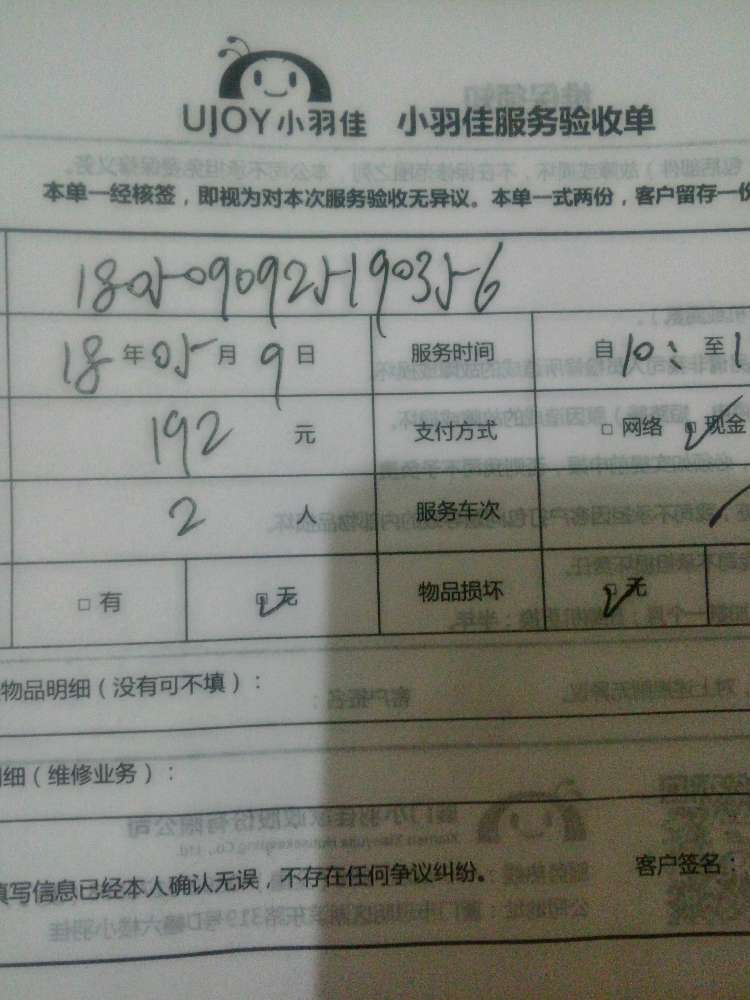 UJOY小羽佳 小羽佳服务验收单
本单一经核签，即视为对本次服务验收无异议。本单一式两份，客户留存一份
180509092519035-6
18年05月9日 服务时间 自10: 至1
192元 支付方式 □ 网络 ☑ 现金
2人 服务车次
□ 有 ☑ 无 物品损坏 ☑ 无
物品明细（没有可不填）：
细（维修业务）：
填写信息已经本人确认无误，不存在任何争议纠纷。 客户签名：